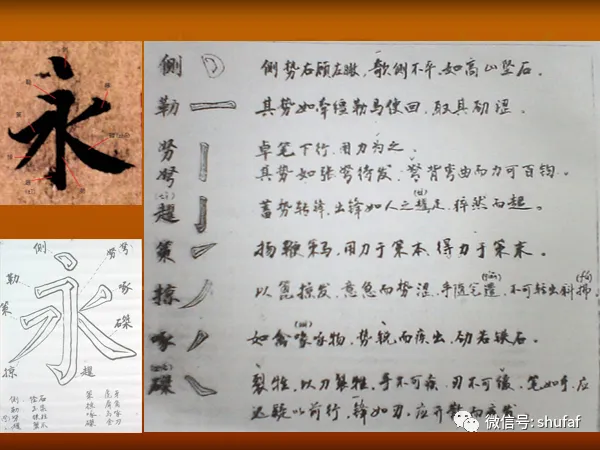 永
側 側势右顾左瞰，欹侧不平，如高山坠石。
勒 其势如牵缰勒马使回，取其劲涩。
努 卓笔下行，用力为之。
弩 其势如张弩待发，弩背弯曲而力可百钧。
趯 蓄势转锋，出锋如人之趯足，猝然而起。
策 扬鞭策马，用力于策本，得力于策末。
掠 以篦掠发，意急而势涩，手随笔遣，不可转出斜拂。
啄 如禽啄物，势锐而疾出，劲若铁石。
磔 裂牲，以刀裂牲，手不可疾，刃不可缓，笔如手，应
以前行，锋如刃，应
側
努弩
勒
啄
策
磔
掠
趯
微信号: shufaf